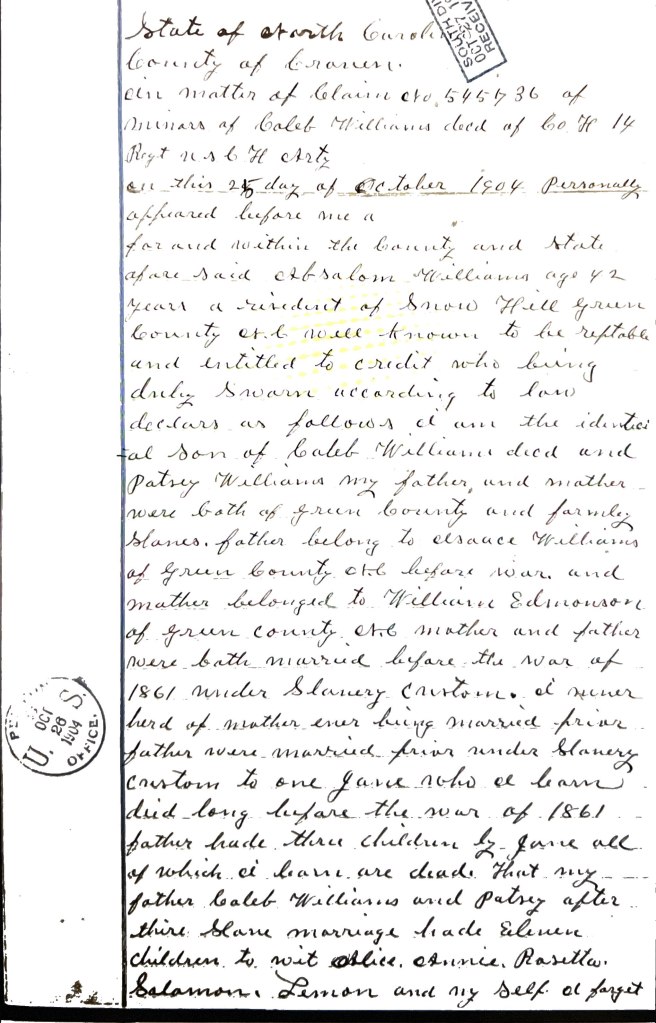 State of North Carolin
SOUTH DI
OCT 27 1
RECEIV
County of Craven.
in matter of Claim No. 545736 of
minors of Caleb Williams decd of Co H 14
Regt U S C H Arty
on this 25 day of October 1904 Personally
appeared before me a
for and within the County and State
afore said Absalom Williams age 42
years a resident of Snow Hill Green
County N.C well known to be reptable
and entitled to credit who being
duly Sworn according to law
declars as follows I am the identici
-al son of Caleb Williams decd and
Patsey Williams my father and mother
were both of Green County and formley
Slaves. father belong to Isauce Williams
of Green County N.C before war. and
mother belonged to William Edmonson
of Green county N.C mother and father
were both married before the war of
1861 under Slavery Custom. I never
herd of mother ever being married prior
father were married prior under Slavery
Custom to one Jane who I learn
died long before the war of 1861
father hade three children by Jane all
of which I learn are deade That my
father Caleb Williams and Patsey after
thire Slave marriage hade Eleven
children to wit Alice. Annie. Rosetta.
Solamon. Lemon and my Self I forget
U. S
OCT
26
1904
OFFICE.